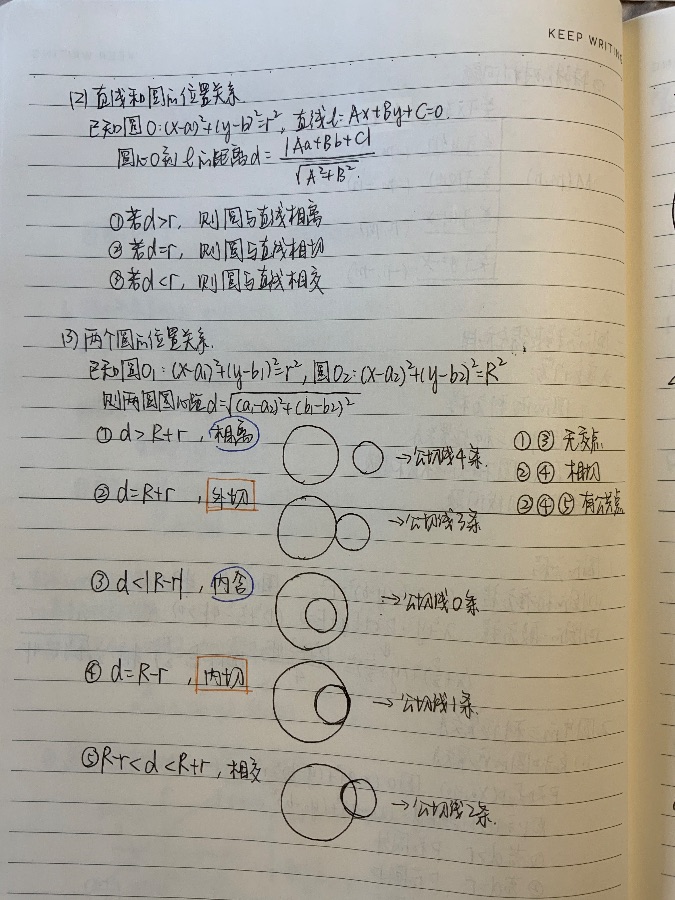 KEEP WRITING
(2) 直线和圆的位置关系
已知圆O:(x-a)²+(y-b)²=r², 直线l:Ax+By+C=0.
圆心O到l的距离d=|Aa+Bb+C|/√A²+B².
①若d>r, 则圆与直线相离
②若d=r, 则圆与直线相切
③若d<r, 则圆与直线相交
(3) 两个圆的位置关系.
已知圆O₁:(x-a₁)²+(y-b₁)²=r², 圆O₂:(x-a₂)²+(y-b₂)²=R²
则两圆圆心距d=√(a₁-a₂)²+(b₁-b₂)²
①d>R+r, 相离 →公切线4条. ①③ 无交点
②④ 相切
②d=R+r, 外切 →公切线3条 ②④⑤ 有公共点
③d<|R-r|, 内含 →公切线0条
④d=R-r, 内切 →公切线1条.
⑤R-r<d<R+r, 相交 →公切线2条.